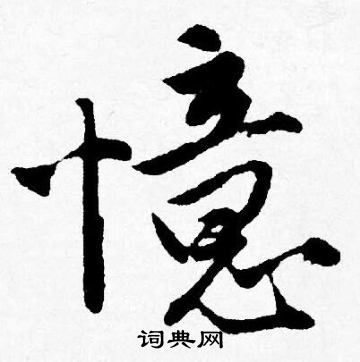 憶
词典网